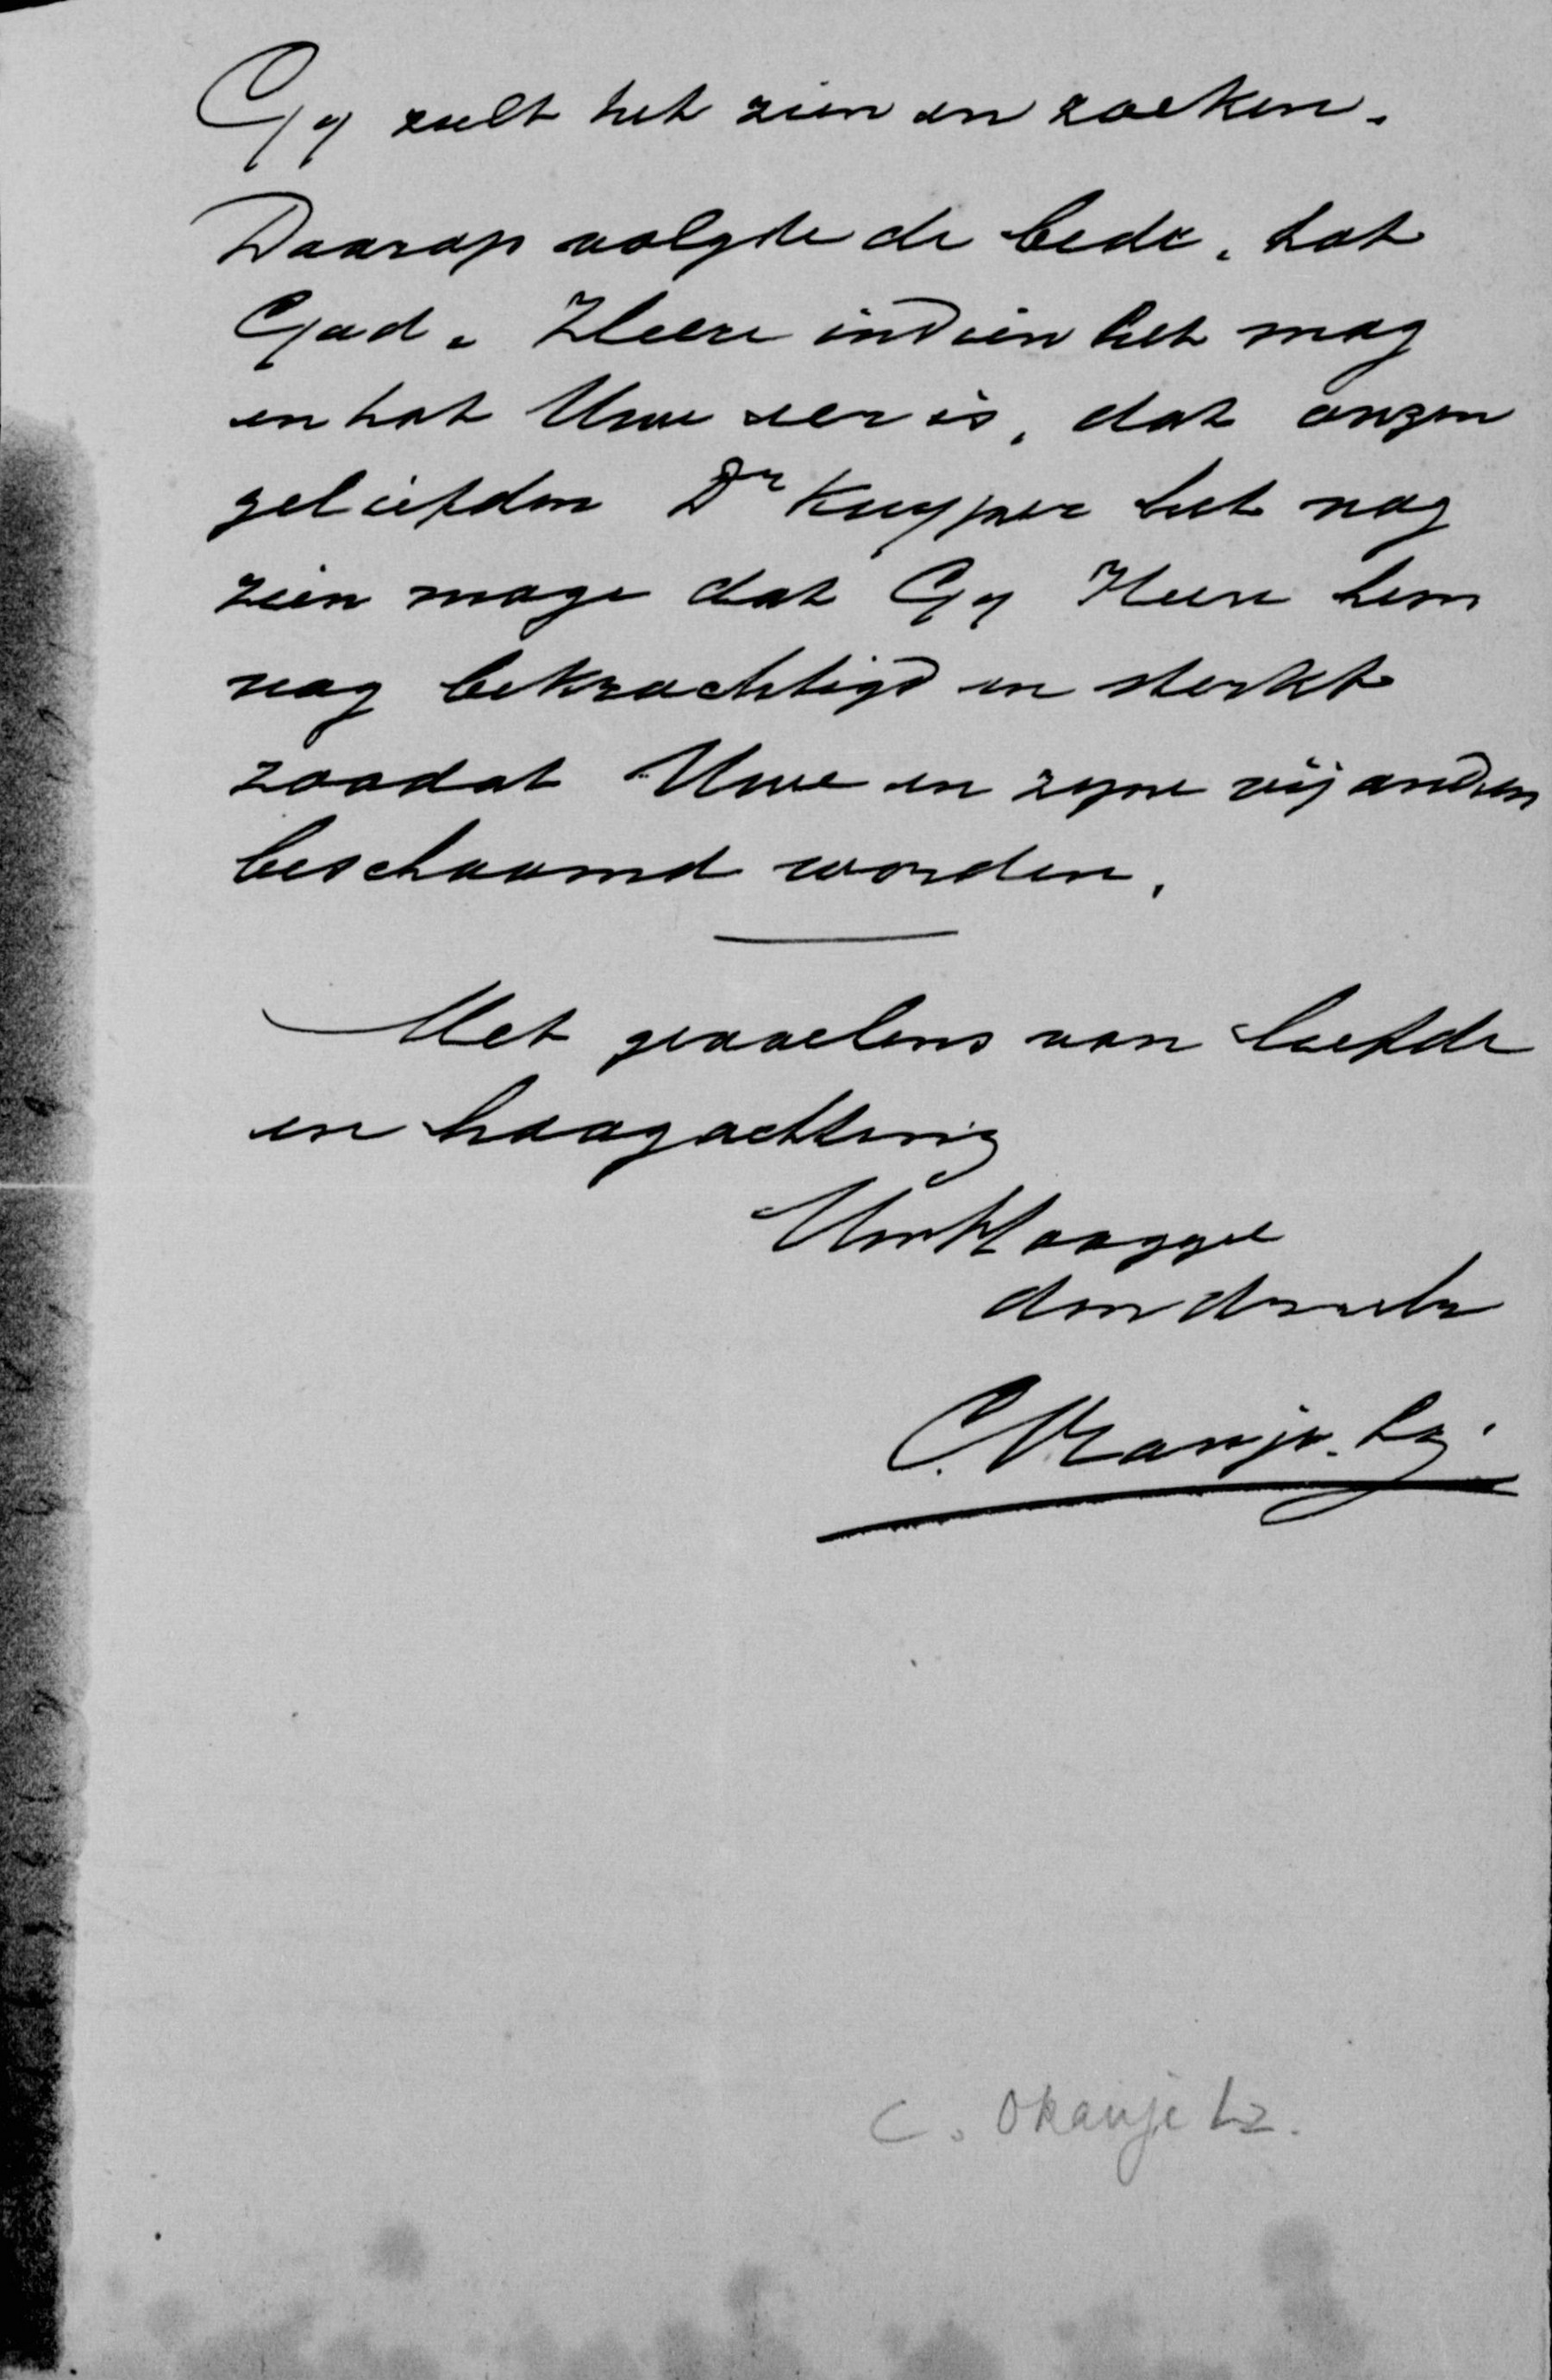 Gy zult het zien en zoeken.
Daarop volgde de bede, tot
God. Heere indien het mag
en tot Uwe eer is, dat onzen
geliefden Dr Kuyper het nog
zien moge dat Gy Heere hem
nog bekrachtigd en sterkt
zoodat Uwe en zyne vijanden
beschaamd worden.
Met gevoelens van liefde
en hoogachting
Uw Hoogge
C. Oranje. Lz.
C. Oranje Lz.